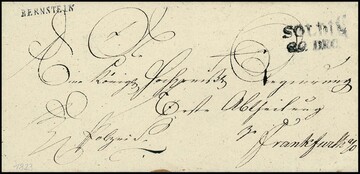 BERNSTEIN
SOLDIN
29 DEC.
Eine Königl. Hochpreißl. Regierung
Erste Abtheilung
zu
Frankfurth a/O